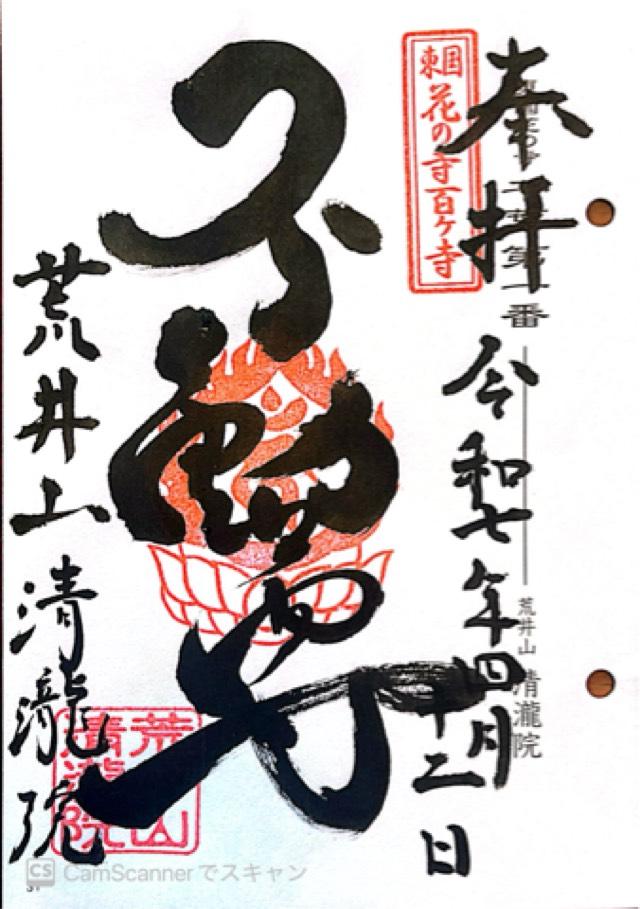 奉拝
東国花の寺百ヶ寺
第一番
荒井山 清瀧院
令和七年四月
十二日
不動尊
荒井山清瀧院
荒井山清瀧院
CS CamScannerでスキャン